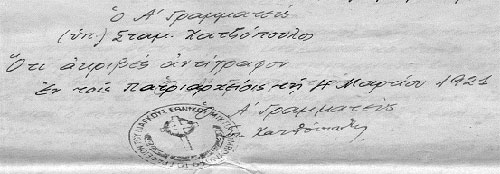 Ὁ Α´ Γραμματεύς
(ὑπ.) Σταμ. Χατζόπουλος
Ὅτι ἀκριβὲς ἀντίγραφον
Ἐν τοῖς Πατριαρχείοις τῇ 14 Μαρτίου 1921
Ὁ Α´ Γραμματεύς